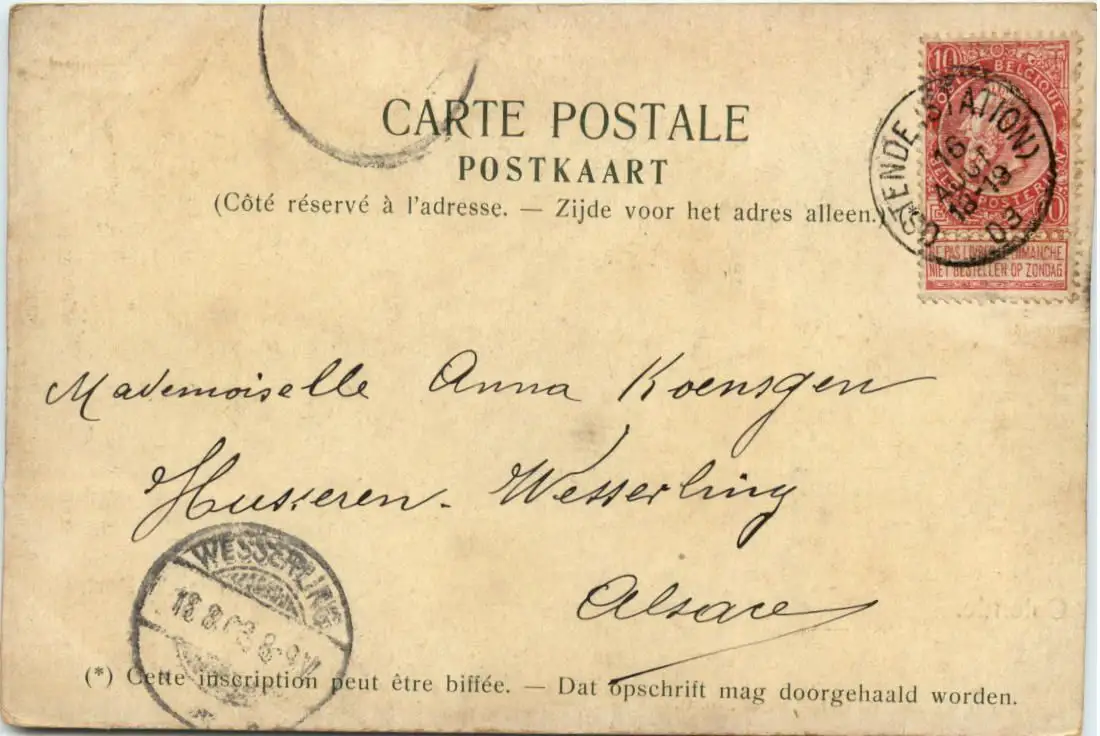 CARTE POSTALE
POSTKAART
(Côté réservé à l'adresse. — Zijde voor het adres alleen.)
10
BELGIQUE
10
NE PAS LIVRER LE DIMANCHE
NIET BESTELLEN OP ZONDAG
OSTENDE (STATION)
16
AOUT
18-19
03
Mademoiselle Anna Koensgen
Husseren-Wesserling
Alsace
WESSERLING
18.8.03 8-9V.
(*) Cette inscription peut être biffée. — Dat opschrift mag doorgehaald worden.